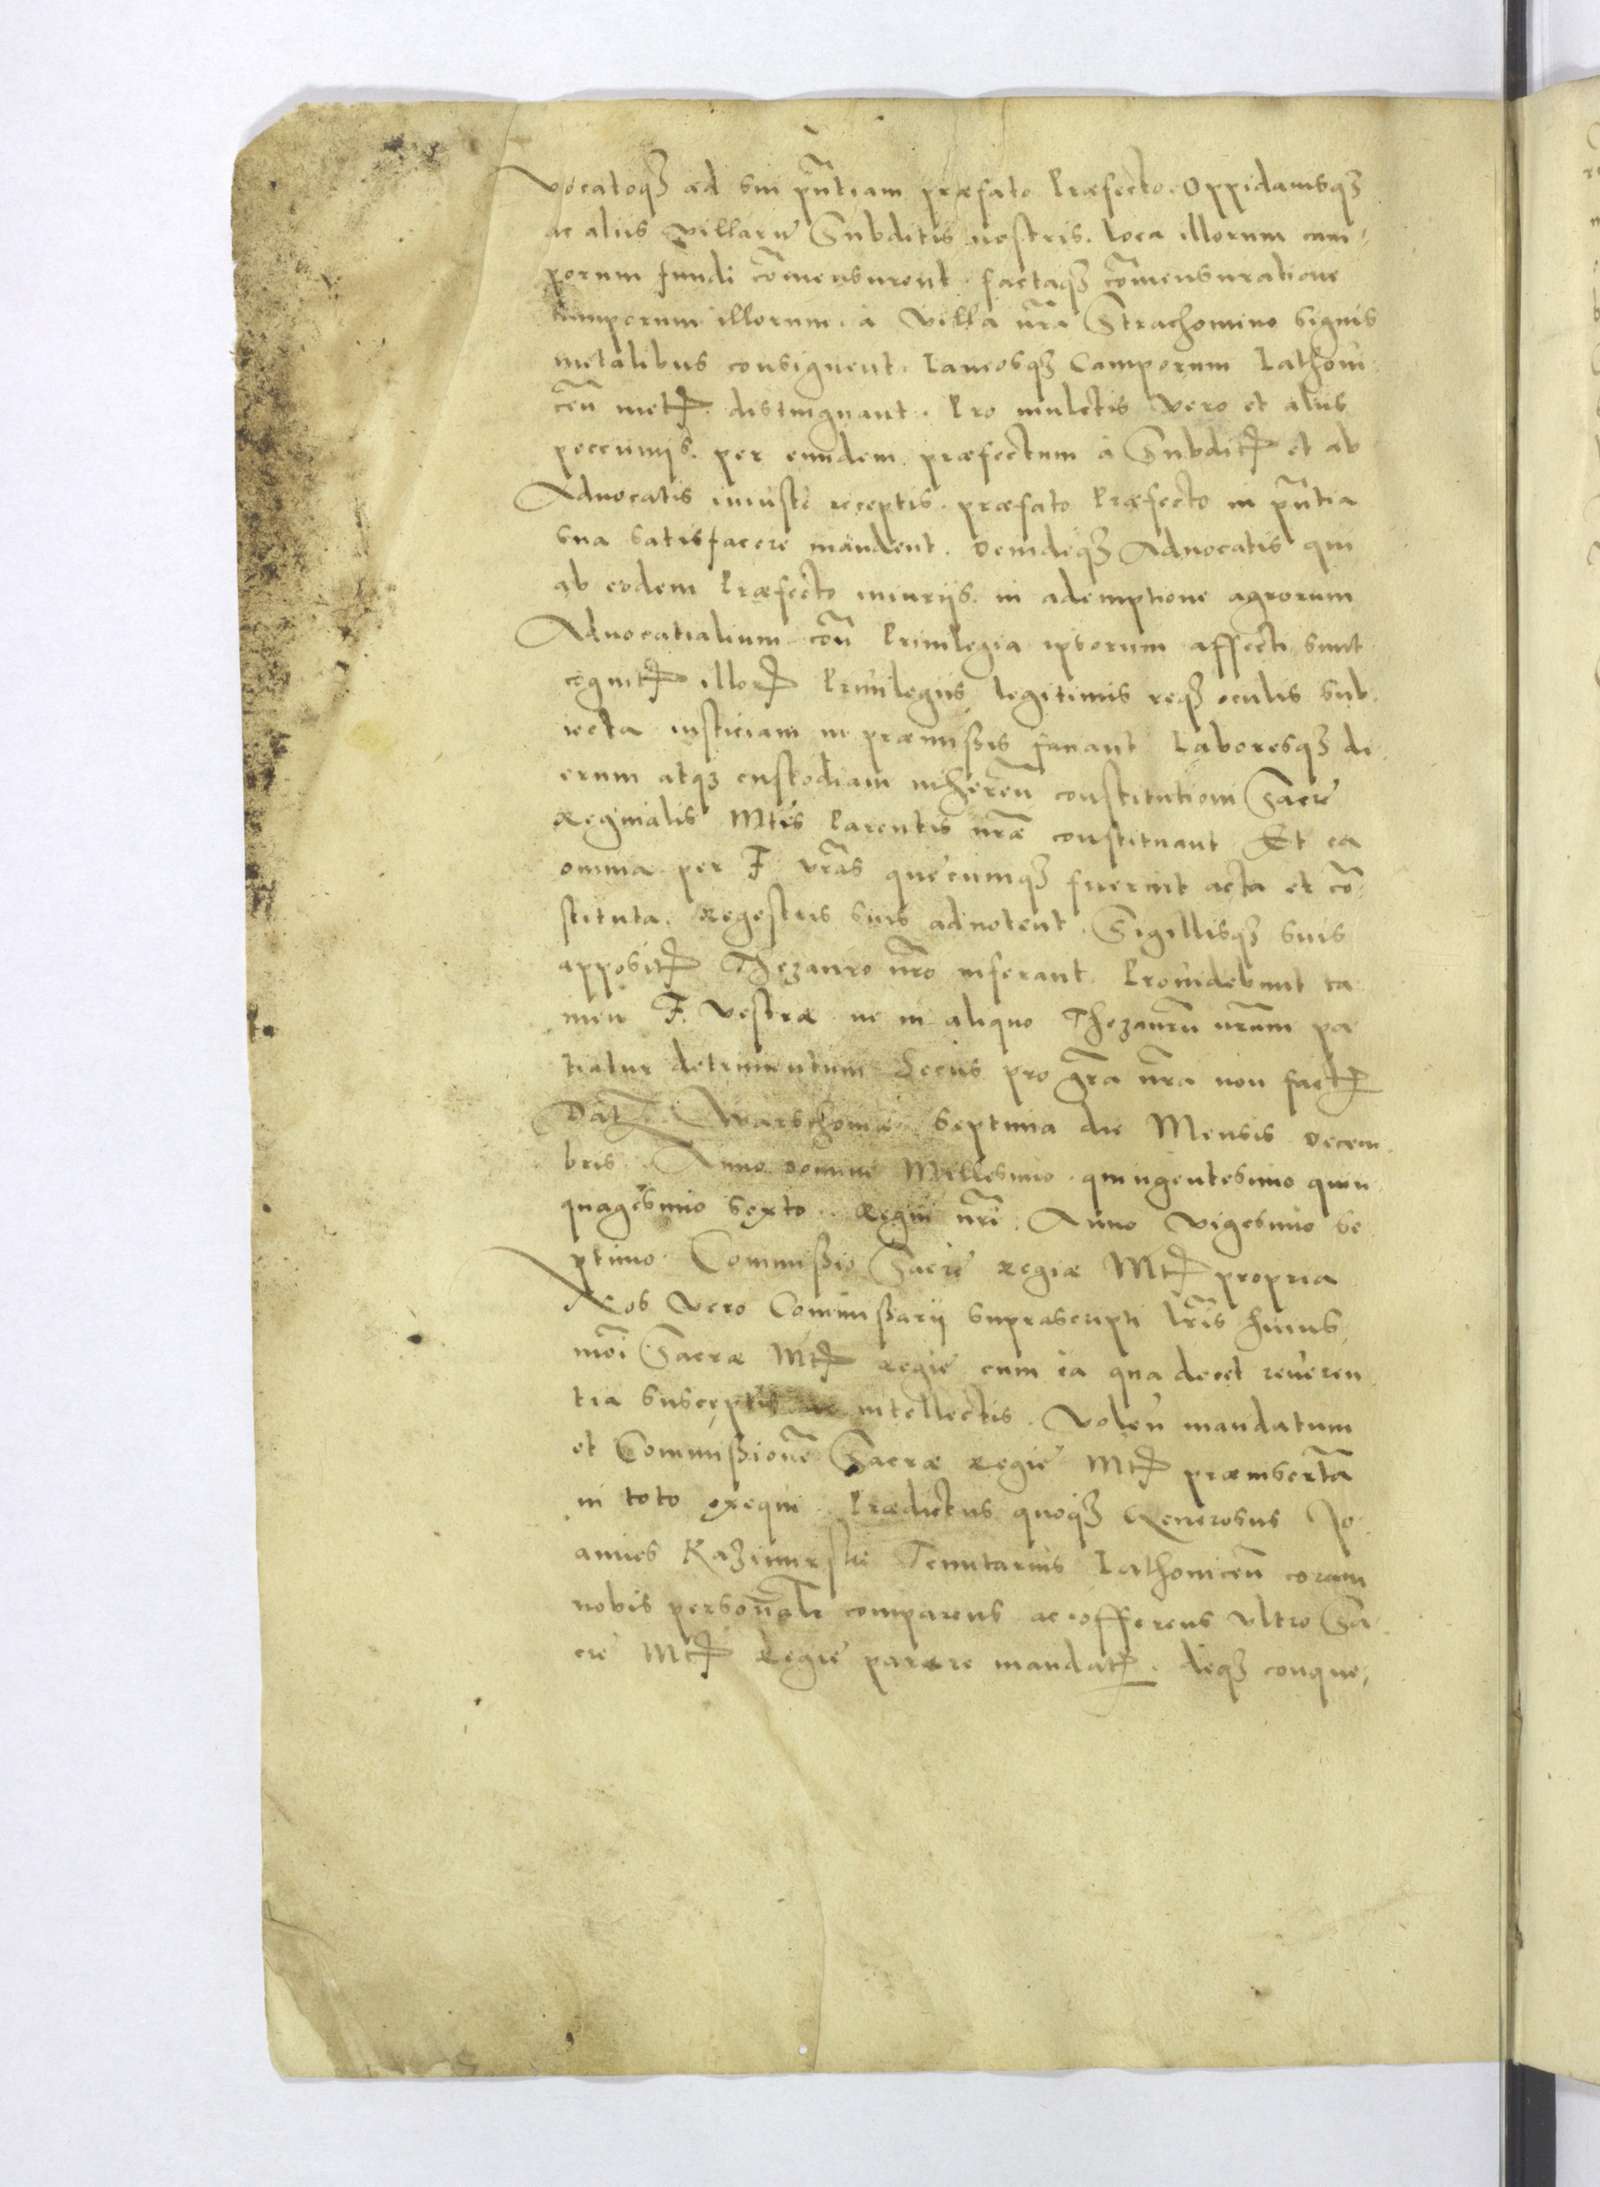 Vocatoq3 ad sui pn̄tiam præfato Præfecto. Oppidanisq3
ac aliis Villarū Subditis nostris. loca illorum cam-
porum fundi cōmensurent. factaq3 cōmensuratione
camporum illorum. à Villa nr̄a Strachomino signis
metalibus consignent. Laneosq3 Camporum Lathovi-
cen̄ metis distinguant. Pro mulctis vero et aliis
peccuniis. per eundem præfectum à Subditis et ab
Advocatis iniuste receptis. præfato Præfecto in pn̄tia
sua satisfacere mandent. Deindeq3 Advocatis qui
ab eodem Præfecto iniuriis. in ademptione agrorum
Advocatialium con̄ Privilegia ipsorum affecti sunt
cognitis illorum Privilegiis legitimis req3 oculis sub-
iecta iusticiam in præmissis faciant Laboresq3 di-
erum atq3 custodiam inheren̄ constitutioni Sacre
Reginalis Mtis Parentis nr̄æ constituant Et ea
omnia per F. vr̄as quecumq3 fuerint acta et cō-
stituta. Regestris suis adnotent. Sigillisq3 suis
appositis Thezauro nr̄o inferant. Providebunt ta-
men F. Vestræ ne in aliquo Thezaurū nr̄um pa-
tiatur detrimentum Secus pro gr̄a nr̄a non factur̄
Dat3 Warschoviæ. Septima die Mensis Decem-
bris. Anno Domini Millesimo quingentesimo quin-
quagesimo sexto. Regni nr̄i. Anno Vigesimo se-
ptimo. Commissio Sacre Regiæ Mtis propria
Nos Vero Commissarii suprascripti lr̄is huius-
mōi Sacræ Mtis Regie cum ea qua decet reveren-
tia susceptis ac intellectis. Volen̄ mandatum
et Commissionē Sacræ Regie Mtis præinsertā
in toto exequi. Prædictus quoq3 Generosus Jo-
annes Kazimirski Tenutarius Lathovicen̄ coram
nobis personalr̄ comparens ac offerens ultro Sa-
cre Mtis Regie parere mandatis. deq3 conque-